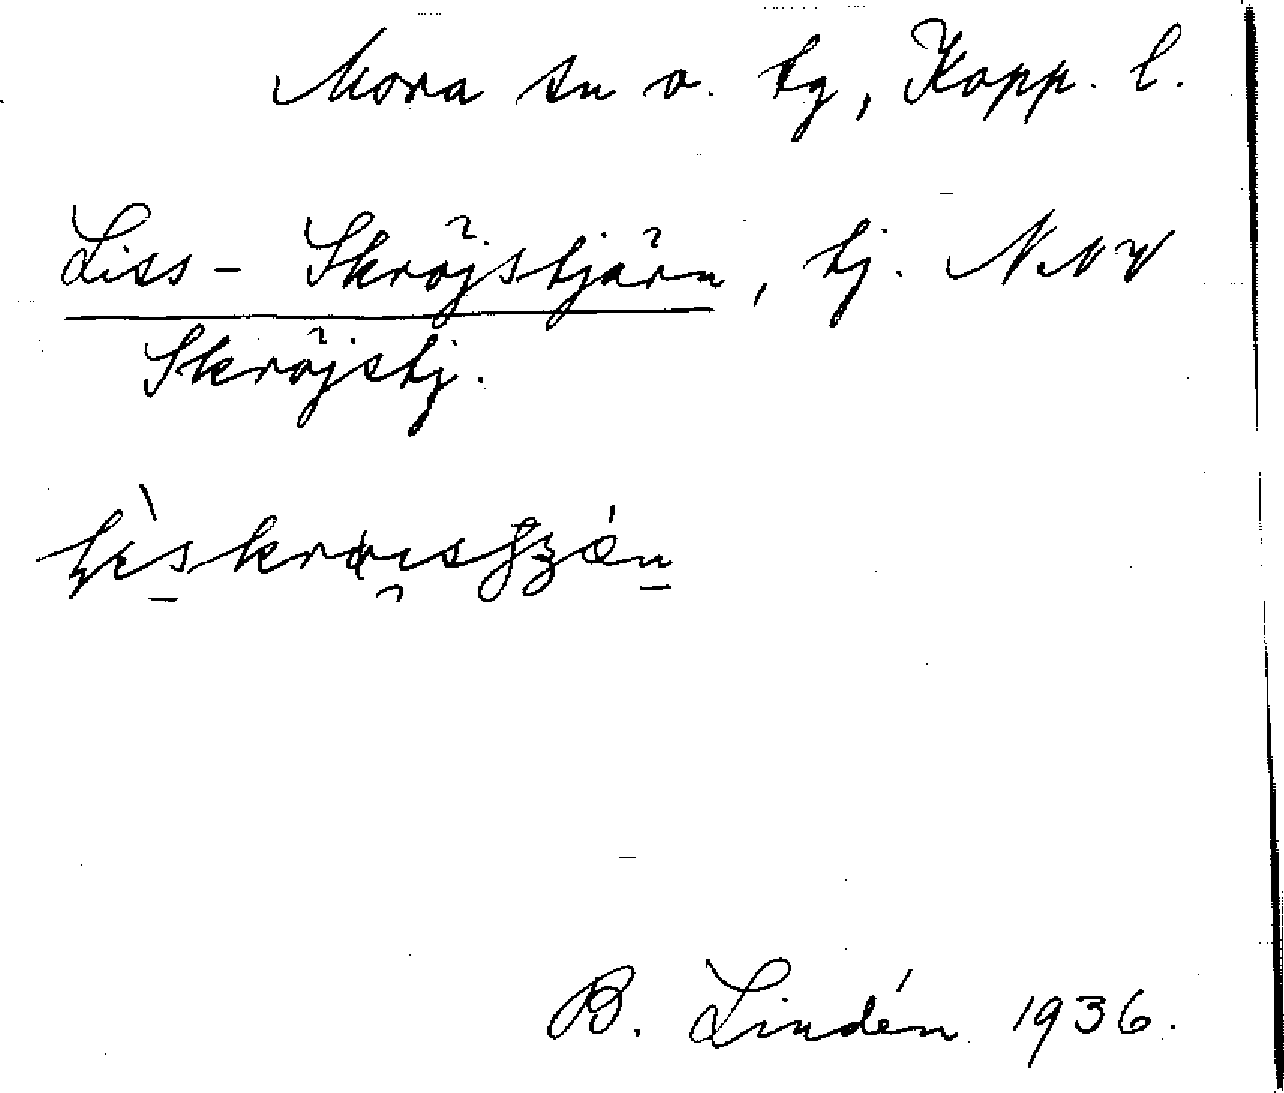 Mora sn o. tg, Kopp. l.
Liss-Skröjstjärn, tj. NNV
Skröjstj.
B. Lindén 1936.